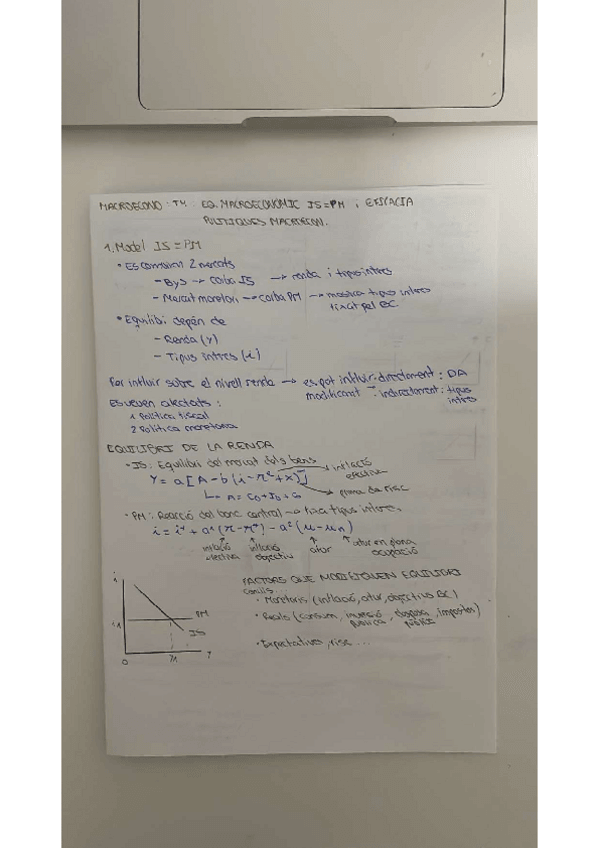 MACROECONO: T4: EQ. MACROECONOMIC IS=PM i EFICACIA
POLITIQUES MACROECON.
1. Model IS=PM
• Es combinen 2 mercats
- ByS → corba IS → renda i tipus interes
- Mercat monetari → corba PM → mostra tipus interes
fixat pel BC
• Equilibri depèn de
- Renda (Y)
- Tipus interes (i)
Per influir sobre el nivell renda → es pot influir directament: DA
modificant - indirectament: tipus
interes
Es veuen afectats:
1 Politica fiscal
2 Politica monetaria
EQUILIBRI DE LA RENDA
• IS: Equilibri del mercat dels bens
inflació
efectiva
Y = a[A-b(i-π^e+x)]
A = C0+I0+G
prima de risc
• PM: Reacció del banc central → fixa tipus interes.
i = i* + a¹(π-π*) - a²(u-un)
inflació
efectiva
inflació
objectiu
atur
atur en plena
ocupació
FACTORS QUE MODIFIQUEN EQUILIBRI
• Monetaris (inflació, atur, objectius BC)
• Reals (consum, inversió, despesa, impostos)
pública
pública
• Expectatives, risc ...
i
PM
i1
IS
0
Y1
Y